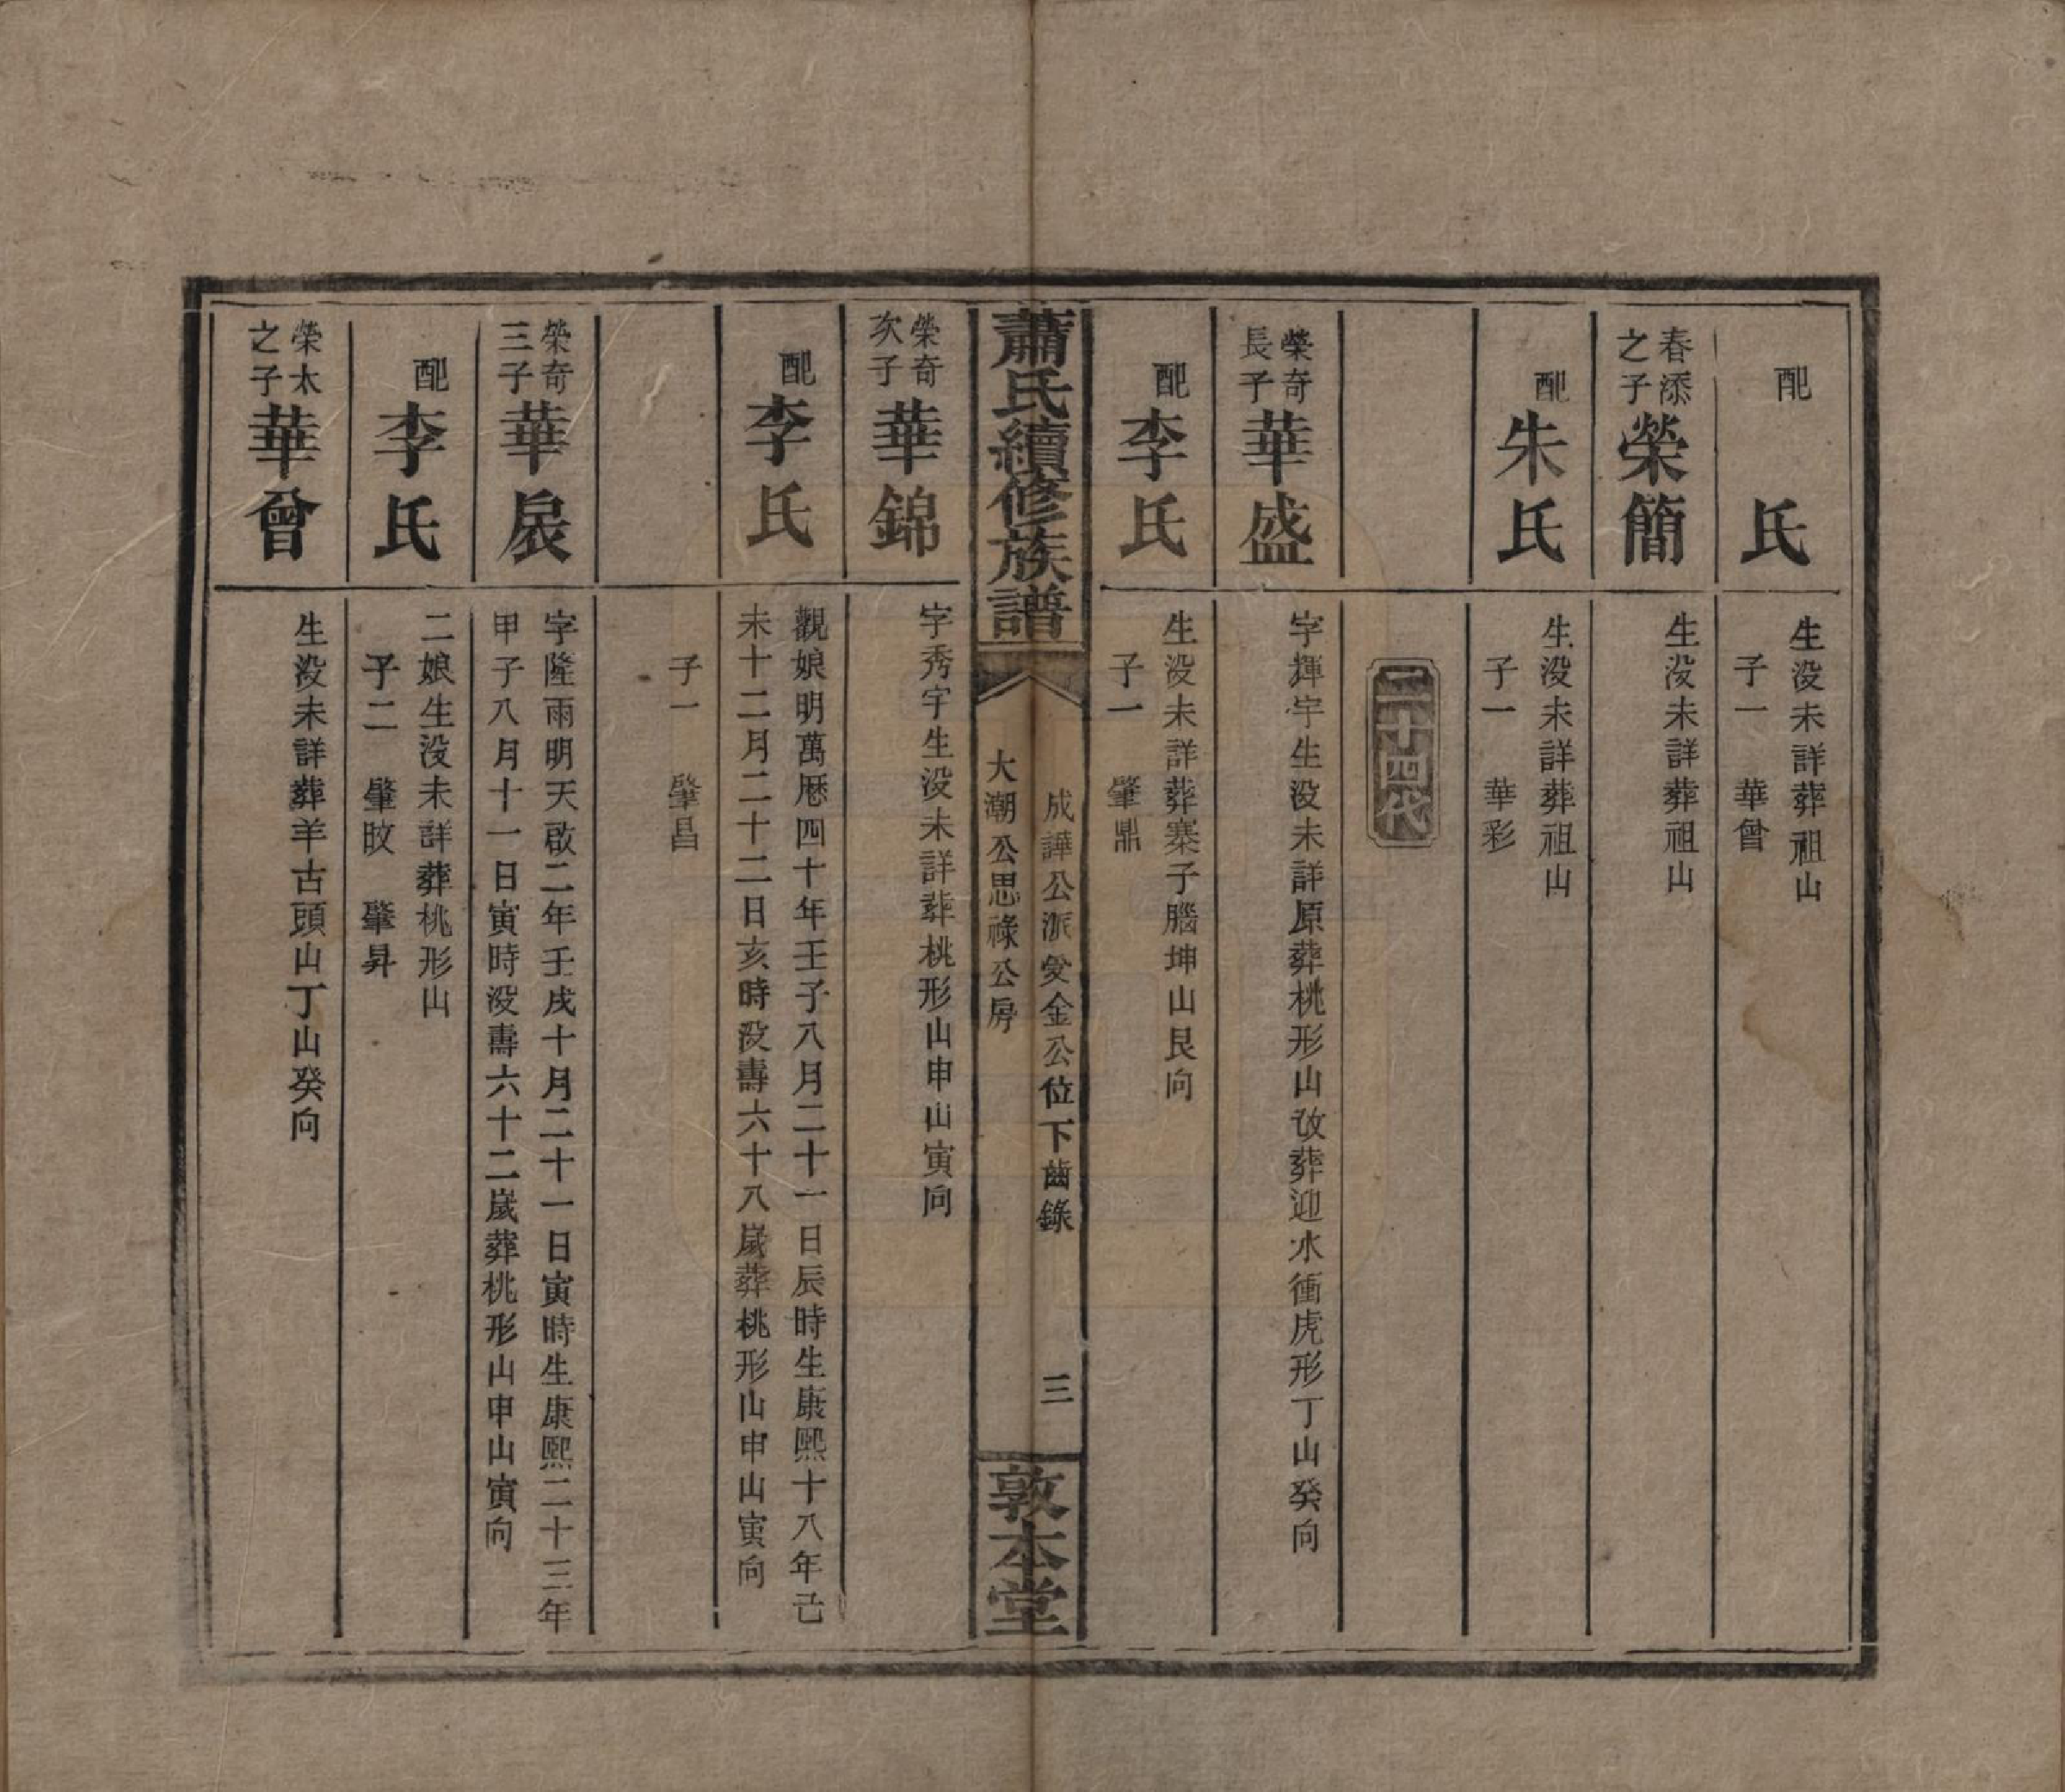 配　氏
生没未詳葬祖山
子一　華曾
春添之子榮簡
生没未詳葬祖山
配朱氏
生没未詳葬祖山
子一　華彩
二十四代
榮奇長子華盛
字輝宇生没未詳原葬桃形山改葬迎水衝虎形丁山癸向
配李氏
生没未詳葬寨子腦坤山艮向
子一　肇鼎
蕭氏續修族譜
成譁公派愛金公位下齒錄
大潮公思祿公房
三
敦本堂
榮奇次子華錦
字秀宇生没未詳葬桃形山申山寅向
配李氏
觀娘明萬厯四十年壬子八月二十一日辰時生康熙十八年己
未十二月二十二日亥時没壽六十八嵗葬桃形山申山寅向
子一　肇昌
榮奇三子華扆
字隆雨明天啟二年壬戌十月二十一日寅時生康熙二十三年
甲子八月十一日寅時没壽六十二嵗葬桃形山申山寅向
配李氏
二娘生没未詳葬桃形山
子二　肇旼　肇昇
榮太之子華曾
生没未詳葬羊古頭山丁山癸向